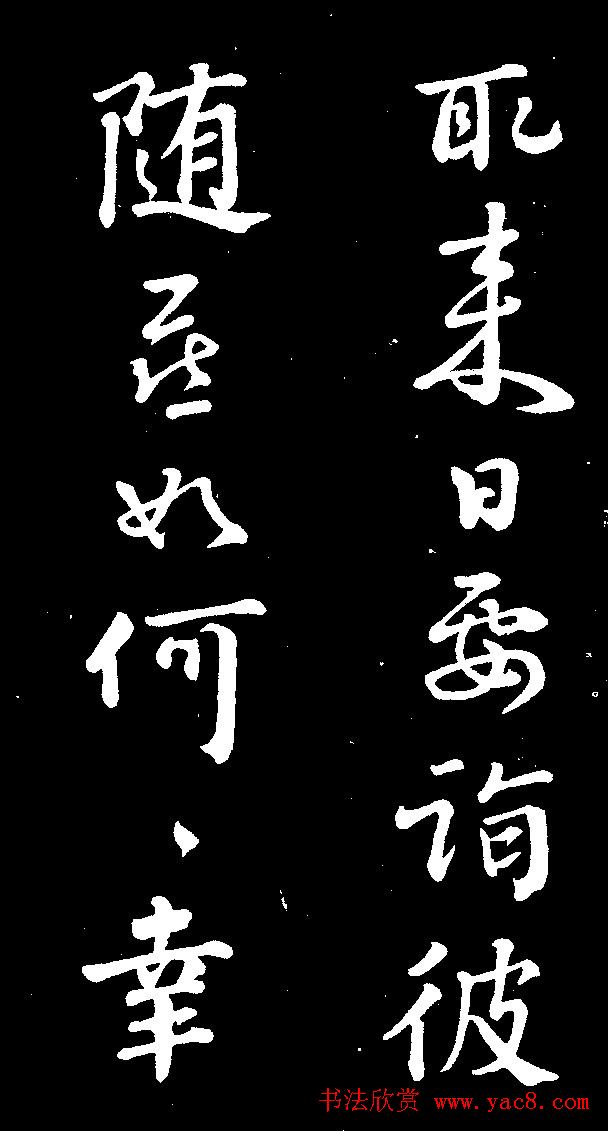 取来日要詢彼
随如何、幸
书法欣赏 www.yac8.com